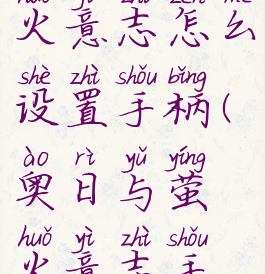 huǒ yì zhì zěn me
火意志怎么
shè zhì shǒu bǐng
设置手柄(
ào rì yǔ yíng
奥日与萤
huǒ yì zhì shǒu
火意志手